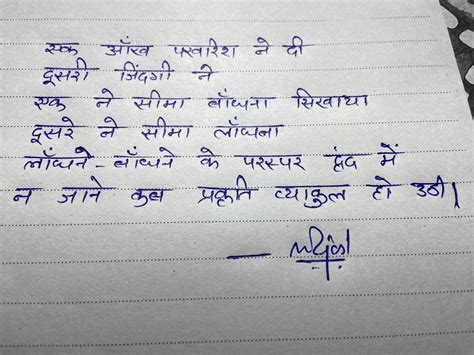 एक आँख परवरिश ने दी
दूसरी जिंदगी ने
एक ने सीमा बाँधना सिखाया
दूसरे ने सीमा लाँघना
लाँघने - बाँधने के परस्पर द्वंद में
न जाने कब प्रकृति व्याकुल हो उठी।